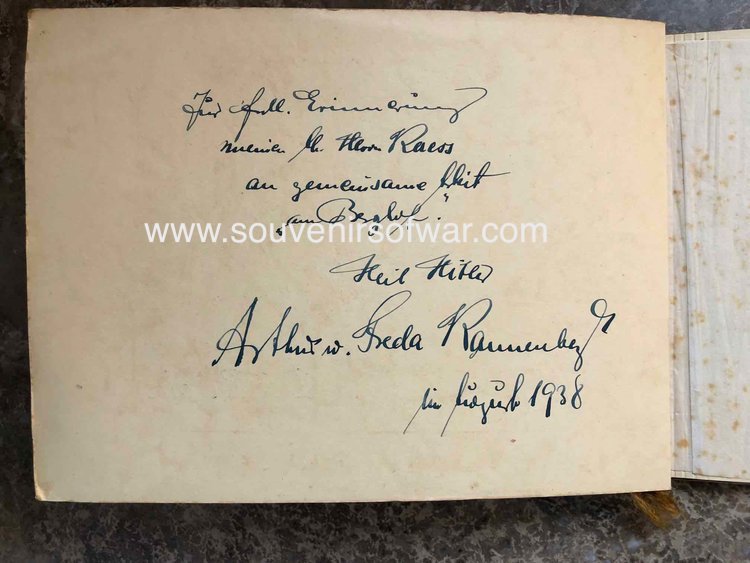 Zur frdl. Erinnerung
meinem lb. Herrn Raess
an gemeinsame Arbeit
"am Berghof".
www.souvenirsofwar.com
Heil Hitler
Arthur u. Freda Kannenberg
im August 1938